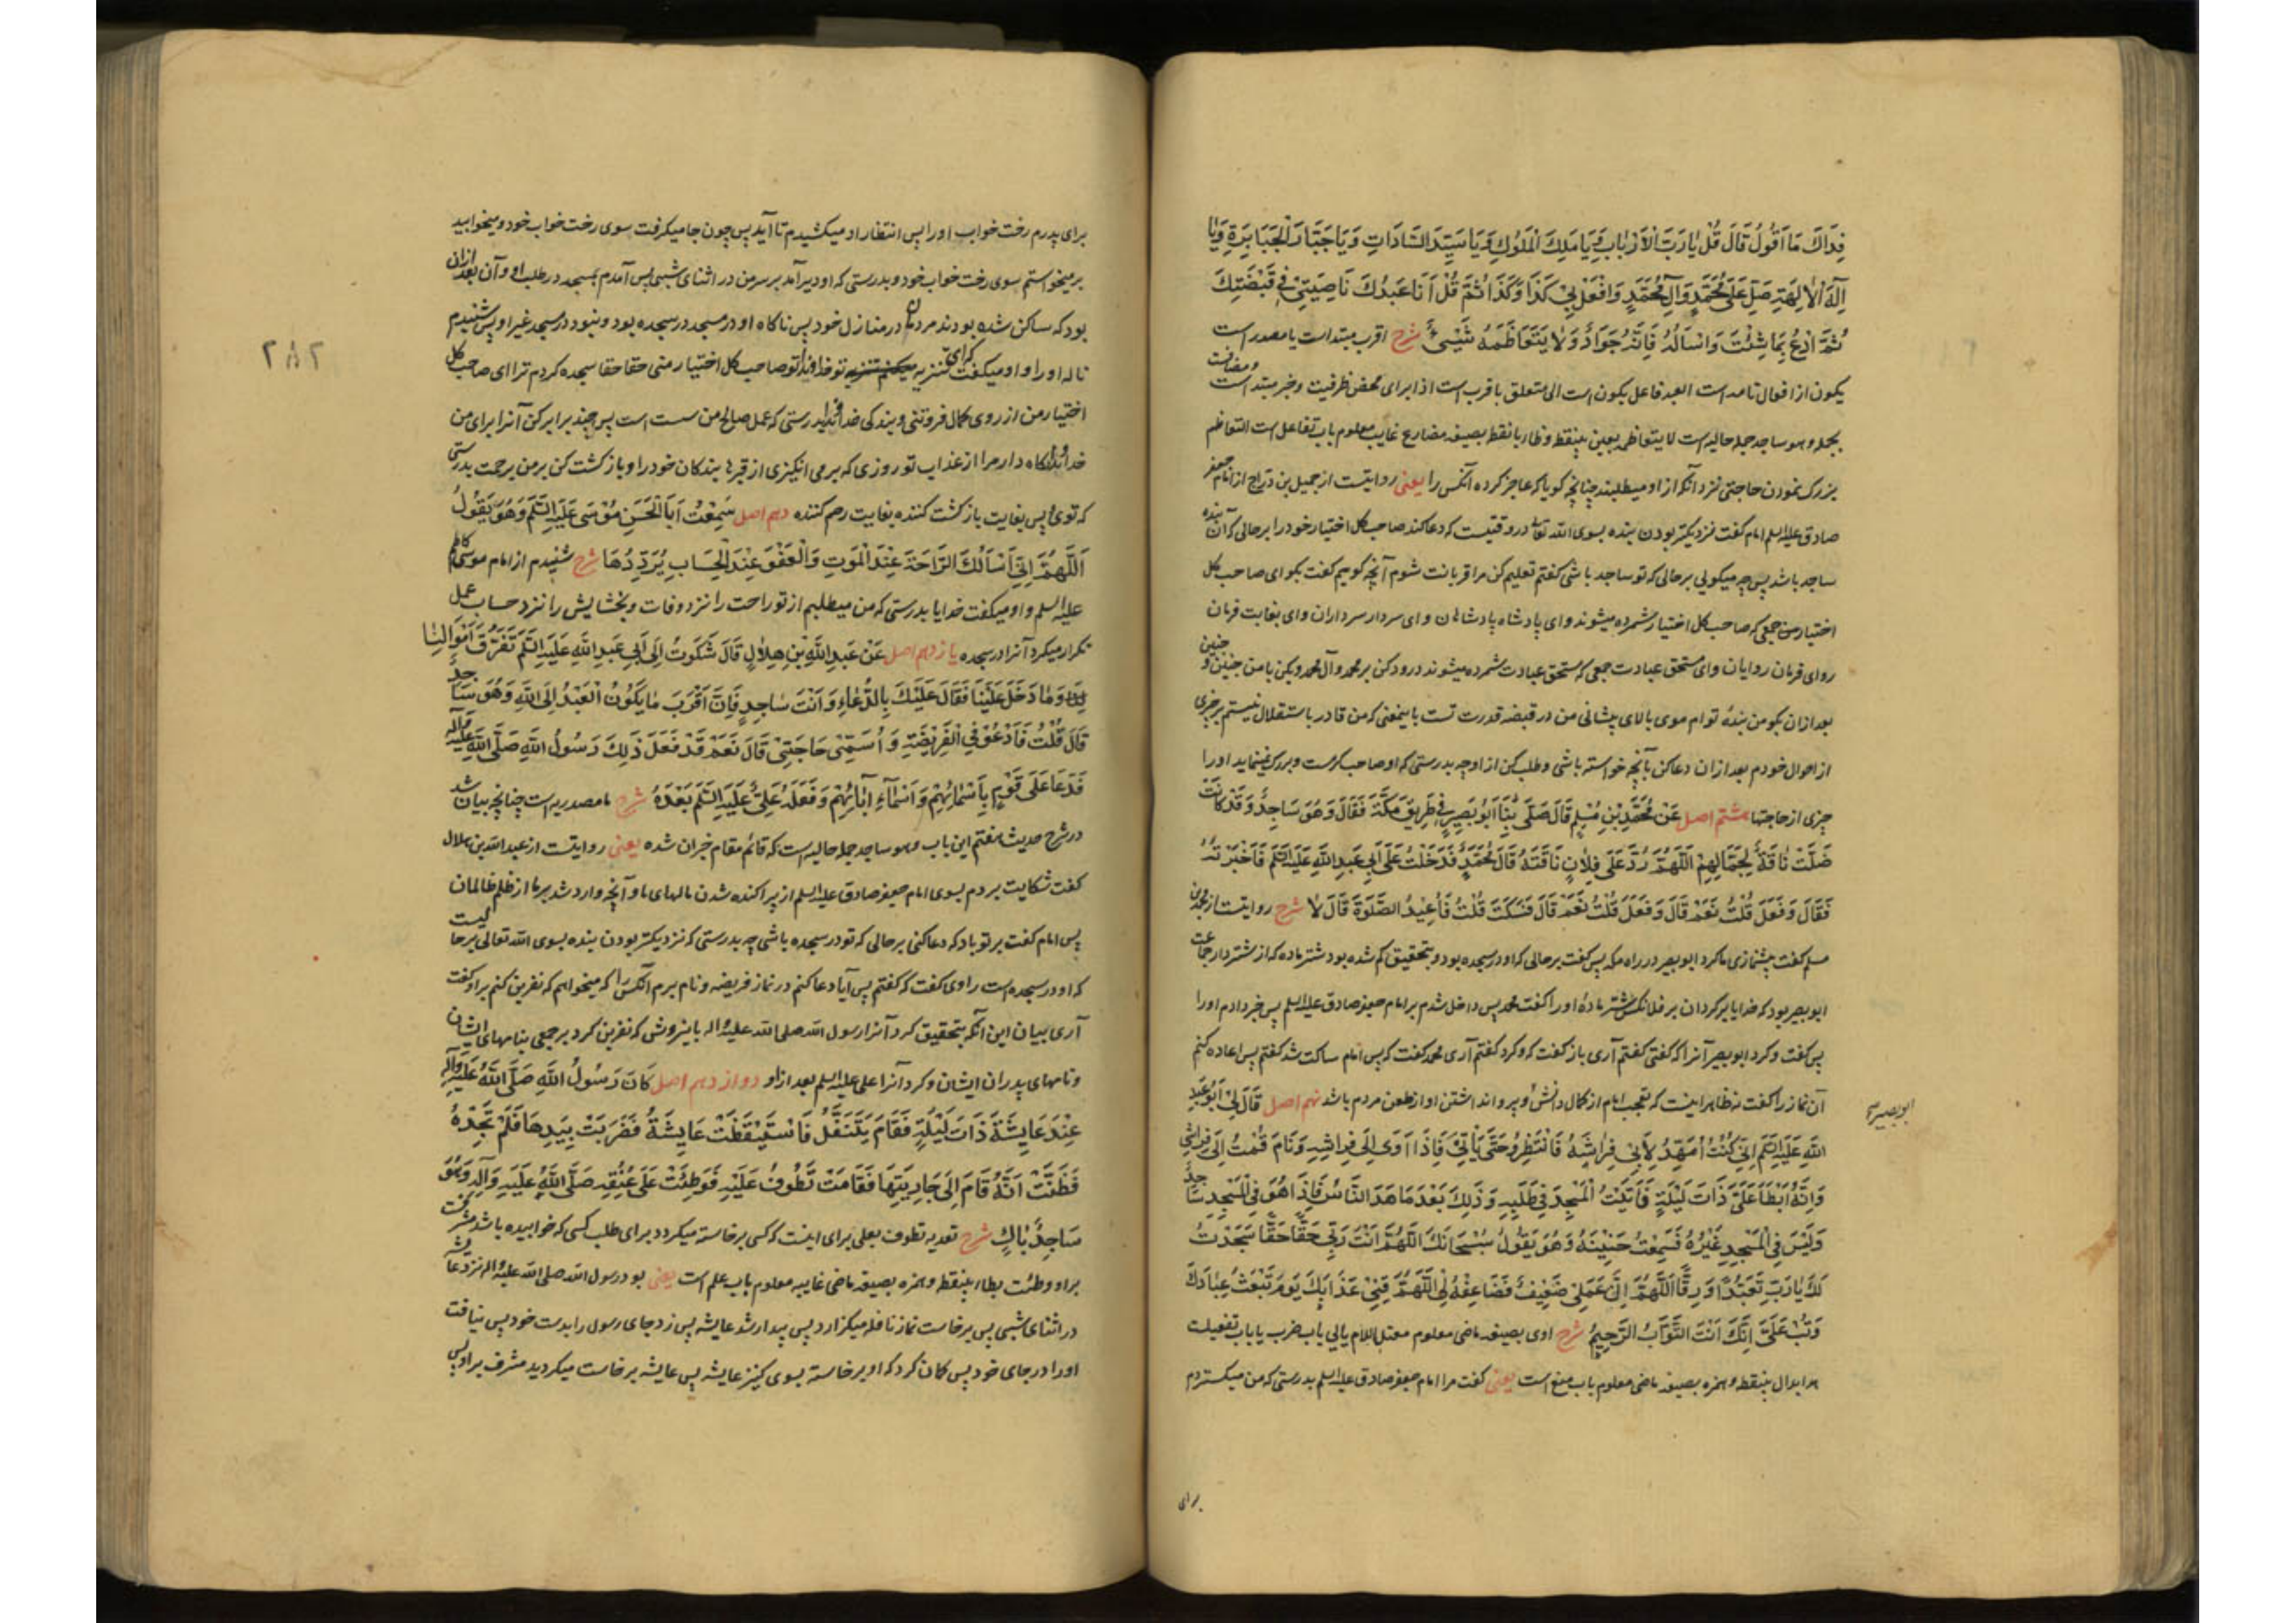 فِدَاكَ مَا اَقُولُ قَالَ قُلْ يَا رَبَّ الْاَرْبَابِ وَيَا مَلِكَ الْمُلُوكِ وَيَا سَيِّدَ السَّادَاتِ وَيَا جَبَّارَ الْجَبَابِرَةِ وَيَا
اِلٰهَ الْاٰلِهَةِ صَلِّ عَلٰى مُحَمَّدٍ وَاٰلِ مُحَمَّدٍ وَافْعَلْ بِي كَذَا وَكَذَا ثُمَّ قُلْ اَنَا عَبْدُكَ نَاصِيَتِي فِي قَبْضَتِكَ
ثُمَّ ادْعُ بِمَا شِئْتَ وَاسْاَلْهُ فَاِنَّهُ جَوَادٌ وَلَا يَتَعَاظَمُهُ شَيْءٌ شرح اقرب مبتداست یا مصدر است ومضافست
یکون از افعال تامه است العبد فاعل یکون است الی متعلق باقرب است اذا برای محض ظرفیت وخبر مبتدا است
بجمله وهو ساجد جمله حالیه است لا یتعاظم بعین بینقطه وظاء بانقطه بصیغه مضارع غایب معلوم باب تفاعل است التعاظم
بزرک نمودن حاجتی نزد آنکه از او میطلبند چنانچه کویا که عاجز کرده آنکس را یعنی روایتست از جمیل بن دراج از امام جعفر
صادق علیه السلم امام کفت نزدیکتر بودن بنده بسوی الله تعالی در وقتیست که دعا کند صاحب کل اختیار خود را بر حالی که آن بنده
ساجد باشد پس چه میکوئی بر حالی که تو ساجد باشی کفتم تعلیم کن مرا قربانت شوم آنچه کویم کفت بکو ای صاحب کل
اختیار من جمعی که صاحب کل اختیار شمرده میشوند وای پادشاه پادشاهان وای سردار سرداران وای بغایت فرمان
روای فرمان روایان وای مستحق عبادت جمعی که مستحق عبادت شمرده میشوند درود کن بر محمد وآل محمد وبکن با من چنین و چنین
بعد ازان بکو من بندهٔ توام موی بالای پیشانی من در قبضه قدرت تست باینمعنی که من قادر باستقلال نیستم بر چیزی
از احوال خودم بعد ازان دعا کن بآنچه خواسته باشی وطلب کن از او چه بدرستی که او صاحب کرمست وبزرک نمینماید او را
چیزی از حاجتها هشتم اصل عَنْ مُحَمَّدِ بْنِ مُسْلِمٍ قَالَ صَلّٰى بِنَا اَبُو بَصِيرٍ فِي طَرِيقِ مَكَّةَ فَقَالَ وَهُوَ سَاجِدٌ وَقَدْ كَانَتْ
ضَلَّتْ نَاقَةٌ لِجَمَّالِهِمْ اَللّٰهُمَّ رُدَّ عَلٰى فُلَانٍ نَاقَتَهُ قَالَ مُحَمَّدٌ فَدَخَلْتُ عَلٰى اَبِي عَبْدِ اللّٰهِ عَلَيْهِ السَّلَم فَاَخْبَرْتُهُ
فَقَالَ وَفَعَلَ قُلْتُ نَعَمْ قَالَ وَفَعَلَ قُلْتُ نَعَمْ قَالَ فَسَكَتَ قُلْتُ فَاُعِيدُ الصَّلٰوةَ قَالَ لَا شرح روایتست از محمد بن
مسلم کفت پیشنمازی ما کرد ابو بصیر در راه مکه پس کفت بر حالی که او در سجده بود وبتحقیق کم شده بود شتر ماده که از شتردار جماعت
ابو بصیر بود که خدایا برکردان بر فلانکس شتر مادهٔ او را کفت محمد پس داخل شدم بر امام جعفر صادق علیه السلم پس خبر دادم او را
پس کفت وکرد ابو بصیر آنرا که کفتی کفتم آری باز کفت که وکرد کفتم آری محمد کفت که پس امام ساکت شد کفتم پس اعاده کنم
آن نماز را کفت نه ظاهر اینست که تعجب امام از کمال دانش او وپروا نداشتن او از طعن مردم باشد نهم اصل قَالَ لِي اَبُو عَبْدِ
ابو بصیر
اللّٰهِ عَلَيْهِ السَّلَم اِنِّي كُنْتُ اُمَهِّدُ لِاَبِي فِرَاشَهُ فَاَنْتَظِرُهُ حَتّٰى يَاْتِيَ فَاِذَا اَوٰى اِلٰى فِرَاشِهِ وَنَامَ قُمْتُ اِلٰى فِرَاشِي
وَاِنَّهُ اَبْطَاَ عَلَيَّ ذَاتَ لَيْلَةٍ فَاَتَيْتُ الْمَسْجِدَ فِي طَلَبِهِ وَذٰلِكَ بَعْدَمَا هَدَاَ النَّاسُ فَاِذَا هُوَ فِي الْمَسْجِدِ سَاجِدٌ
وَلَيْسَ فِي الْمَسْجِدِ غَيْرُهُ فَسَمِعْتُ حَنِينَهُ وَهُوَ يَقُولُ سُبْحَانَكَ اللّٰهُمَّ اَنْتَ رَبِّي حَقًّا حَقًّا سَجَدْتُ
لَكَ يَا رَبِّ تَعَبُّدًا وَرِقًّا اَللّٰهُمَّ اِنَّ عَمَلِي ضَعِيفٌ فَضَاعِفْهُ لِي اَللّٰهُمَّ قِنِي عَذَابَكَ يَوْمَ تَبْعَثُ عِبَادَكَ
وَتُبْ عَلَيَّ اِنَّكَ اَنْتَ التَّوَّابُ الرَّحِيمُ شرح اوی بصیغه ماضی معلوم معتل اللام یائی باب ضرب یا باب تفعیلست
هدا بدال بینقطه وهمزه بصیغه ماضی معلوم باب منع است یعنی کفت مرا امام جعفر صادق علیه السلم بدرستی که من میکستردم
برای
برای پدرم رخت خواب او را پس انتظار او میکشیدم تا آید پس چون جا میکرفت سوی رخت خواب خود ومیخوابید
برمیخواستم سوی رخت خواب خود وبدرستی که او دیر آمد بر سر من در اثنای شبی پس آمدم بمسجد در طلب او وآن بعد ازان
بود که ساکن شده بودند مردمان در منازل خود پس ناکاه او در مسجد در سجده بود ونبود در مسجد غیر او پس شنیدم
ناله او را واو میکفت که ای تنزیه میکنم تنزیه تو خداوندا تو صاحب کل اختیار منی حقا حقا سجده کردم ترا ای صاحب کل
اختیار من از روی کمال فروتنی وبندکی خداوندا بدرستی که عمل صالح من سست است پس چند برابر کن آنرا برای من
خداوندا نکاه دار مرا از عذاب تو روزی که برمی انکیزی از قبرها بندکان خود را وبازکشت کن بر من برحمت بدرستی
که توئی پس بغایت بازکشت کننده بغایت رحم کننده دهم اصل سَمِعْتُ اَبَا الْحَسَنِ مُوسٰى عَلَيْهِ السَّلَم وَهُوَ يَقُولُ
اَللّٰهُمَّ اِنِّي اَسْاَلُكَ الرَّاحَةَ عِنْدَ الْمَوْتِ وَالْعَفْوَ عِنْدَ الْحِسَابِ يُرَدِّدُهَا شرح شنیدم از امام موسی کاظم
علیه السلم واو میکفت خدایا بدرستی که من میطلبم از تو راحت را نزد وفات وبخشایش را نزد حساب عمل
تکرار میکرد آنرا در سجده یازدهم اصل عَنْ عَبْدِ اللّٰهِ بْنِ هِلَالٍ قَالَ شَكَوْتُ اِلٰى اَبِي عَبْدِ اللّٰهِ عَلَيْهِ السَّلَم تَفَرُّقَ اَمْوَالِنَا
وَمَا دَخَلَ عَلَيْنَا فَقَالَ عَلَيْكَ بِالدُّعَاءِ وَاَنْتَ سَاجِدٌ فَاِنَّ اَقْرَبَ مَا يَكُونُ الْعَبْدُ اِلَى اللّٰهِ وَهُوَ سَاجِدٌ
قَالَ قُلْتُ فَاَدْعُوَ فِي الْفَرِيضَةِ وَاُسَمِّيَ حَاجَتِي قَالَ نَعَمْ قَدْ فَعَلَ ذٰلِكَ رَسُولُ اللّٰهِ صَلَّى اللّٰهُ عَلَيْهِ وَاٰلِهِ
فَدَعَا عَلٰى قَوْمٍ بِاَسْمَائِهِمْ وَاَسْمَاءِ اٰبَائِهِمْ وَفَعَلَهُ عَلِيٌّ عَلَيْهِ السَّلَم بَعْدَهُ شرح ما مصدریه است چنانچه بیان شد
در شرح حدیث هفتم این باب وهو ساجد جمله حالیه است که قائم مقام خبر ان شده یعنی روایتست از عبد الله بن هلال
کفت شکایت بردم بسوی امام جعفر صادق علیه السلم از پراکنده شدن مالهای ما وآنچه وارد شد بر ما از ظلم ظالمان
پس امام کفت بر تو باد که دعا کنی بر حالی که تو در سجده باشی چه بدرستی که نزدیکتر بودن بنده بسوی الله تعالی بر حالیست
که او در سجده است راوی کفت که کفتم پس آیا دعا کنم در نماز فریضه ونام برم آنکس را که میخواهم که نفرین کنم بر او کفت
آری بیان این آنکه بتحقیق کرد آنرا رسول الله صلی الله علیه واله باینروش که نفرین کرد بر جمعی بنامهای ایشان
ونامهای پدران ایشان وکرد آنرا علی علیه السلم بعد از او دوازدهم اصل كَانَ رَسُولُ اللّٰهِ صَلَّى اللّٰهُ عَلَيْهِ وَاٰلِهِ
عِنْدَ عَايِشَةَ ذَاتَ لَيْلَةٍ فَقَامَ يَتَنَفَّلُ فَاسْتَيْقَظَتْ عَايِشَةُ فَضَرَبَتْ بِيَدِهَا فَلَمْ تَجِدْهُ
فَظَنَّتْ اَنَّهُ قَامَ اِلٰى جَارِيَتِهَا فَقَامَتْ تَطُوفُ عَلَيْهِ فَوَطِئَتْ عَلٰى عُنُقِهِ صَلَّى اللّٰهُ عَلَيْهِ وَاٰلِهِ وَهُوَ
سَاجِدٌ بَاكٍ شرح تعدیه تطوف بعلی برای اینست که کسی برخاسته میکردد برای طلب کسی که خوابیده باشد مشرفست
بر او وطئت بطاء بینقطه وهمزه بصیغه ماضی غایبه معلوم باب علم است یعنی بود رسول الله صلی الله علیه واله نزد عایشه
در اثنای شبی پس برخاست نماز نافله میکزارد پس بیدار شد عایشه پس زد جای رسول را بدست خود پس نیافت
او را در جای خود پس کمان کرد که او برخاسته بسوی کنیز عایشه پس عایشه برخاست میکردید مشرف بر او پس
٢٨٢